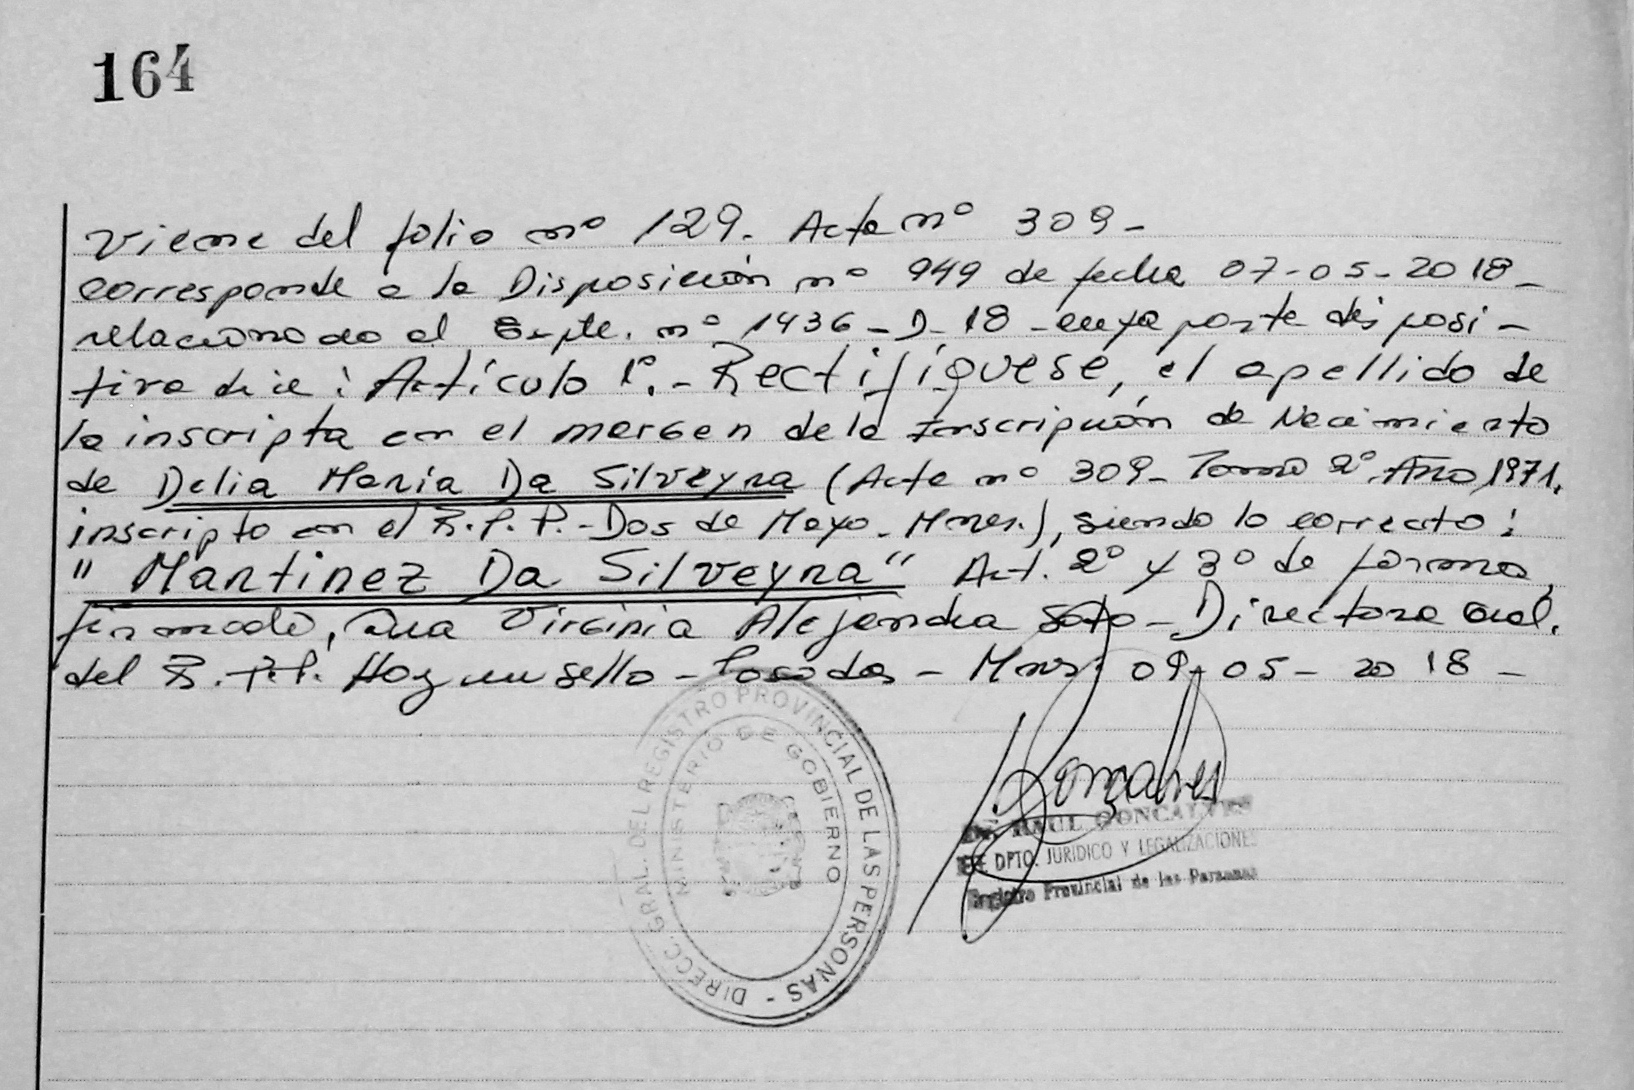 164
Viene del folio nº 129. Acta nº 309-
corresponde a la Disposición nº 949 de fecha 07-05-2018-
relacionado al Expte. nº 1436-D-18-cuya parte disposi-
tiva dice: Artículo 1º.- Rectifíquese, el apellido de
la inscripta en el margen de la Inscripción de Nacimiento
de Delia María Da Silveyra (Acta nº 309- Tomo 2º Año 1971.
inscripto en el R.P.P.-Dos de Mayo-Mnes.), siendo lo correcto:
"Martinez Da Silveyra" Art. 2º y 3º de forma,
firmado, Dra Virginia Alejandra Soto-Directora Gral.
del R.P.P. Hay un sello-Posadas-Mnes: 09-05-2018-
DIRECC. GRAL. DEL REGISTRO PROVINCIAL DE LAS PERSONAS -
MINISTERIO DE GOBIERNO
Goncalves
Dr. RAUL GONCALVES
JEFE DPTO. JURIDICO Y LEGALIZACIONES
Registro Provincial de las Personas